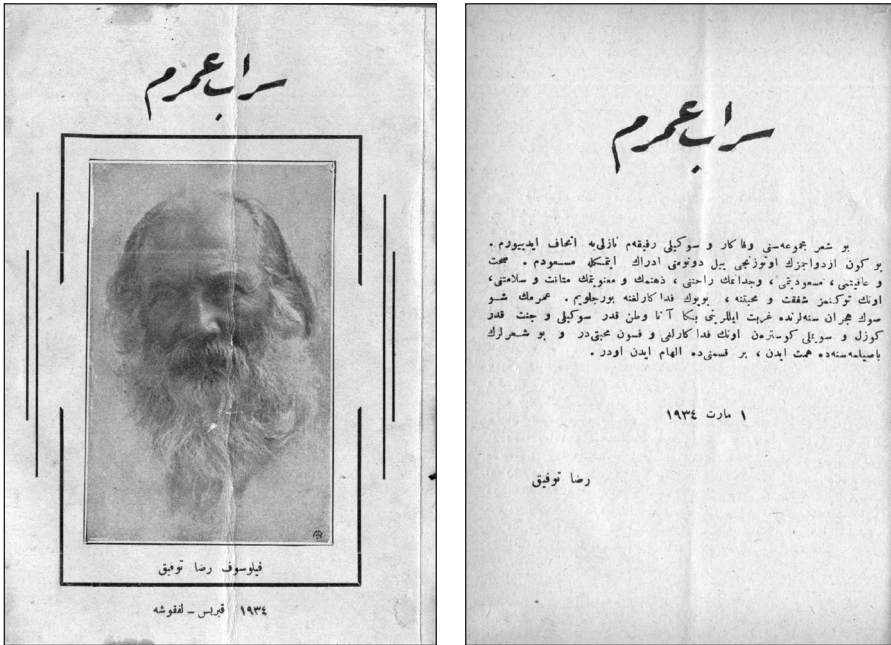 سراب عمرم
فيلوسوف رضا توفيق
١٩٣٤ قبريس ـ لفقوشه
سراب عمرم
بو شعر مجموعه‌سنی وفاکار و سوکیلی رفیقه‌م نازلی‌یه اتحاف ایدییورم .
بو کون ازدواجزك اوتوزنجی ییل دونومنی ادراك ایتمکله مسعودم . صحت
و عافیتمی ، مسعودیتمی ، وجدانمك راحتنی ، ذهنمك و معنویتمك متانت و سلامتنی،
اونك توکنمز شفقت و محبتنه ، بویوك فداکارلغنه بورجلویم . عمرمك شو
صوك هجران سنه‌لرنده غربت ایللرینی بکا آنا وطن قدر سوکیلی و جنت قدر
کوزل و سویملی کوسترەن اونك فداکارلغی و فسون محبتی‌در و بو شعرلرك
باصیلمه‌سنه‌ده همت ایدن ، بر قسمنی‌ده الهام ایدن اودر .
١ مارت ١٩٣٤
رضا توفيق